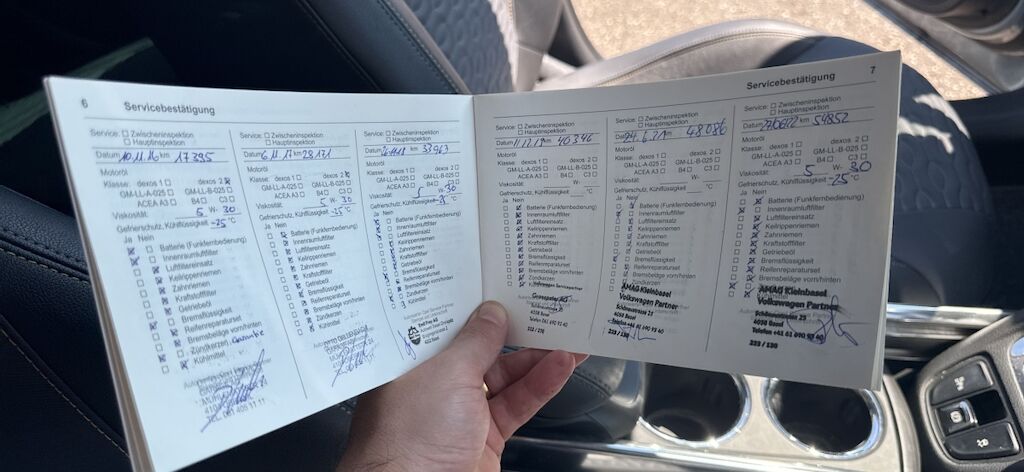 6 Servicebestätigung
Service: □ Zwischeninspektion
□ Hauptinspektion
Datum 10.11.16 km 17395
Motoröl
Klasse: dexos 1 □ dexos 2 ☒
GM-LL-A-025 □ GM-LL-B-025 □
ACEA A3 □ B4 □ C3 □
Viskosität: 5 W- 30
Gefrierschutz, Kühlflüssigkeit -25 °C
Ja Nein
Batterie (Funkfernbedienung)
Innenraumluftfilter
Luftfiltereinsatz
Keilrippenriemen
Zahnriemen
Kraftstofffilter
Getriebeöl
Bremsflüssigkeit
Reifenreparaturset
Bremsbeläge vorn/hinten
Zündkerzen Garantie
Kühlmittel
Service: □ Zwischeninspektion
□ Hauptinspektion
Datum 6.11.17 km 28171
Motoröl
Klasse: dexos 1 □ dexos 2
GM-LL-A-025 □ GM-LL-B-025 □
ACEA A3 □ B4 □ C3 □
Viskosität: 5 W- 30
Gefrierschutz, Kühlflüssigkeit -25 °C
Ja Nein
Batterie (Funkfernbedienung)
Innenraumluftfilter
Luftfiltereinsatz
Keilrippenriemen
Zahnriemen
Kraftstofffilter
Getriebeöl
Bremsflüssigkeit
Reifenreparaturset
Bremsbeläge vorn/hinten
Zündkerzen
Kühlmittel
Service: □ Zwischeninspektion
□ Hauptinspektion
Datum km 33963
Motoröl
Klasse: dexos 1 □ dexos 2 □
GM-LL-A-025 □ GM-LL-B-025 □
ACEA A3 □ B4 □ C3 □
Viskosität: 5 W- 30
Gefrierschutz, Kühlflüssigkeit -25 °C
Ja Nein
Batterie (Funkfernbedienung)
Innenraumluftfilter
Luftfiltereinsatz
Keilrippenriemen
Zahnriemen
Kraftstofffilter
Getriebeöl
Bremsflüssigkeit
Reifenreparaturset
Bremsbeläge vorn/hinten
Zündkerzen
Kühlmittel
Emil Frey AG
Servicebestätigung 7
Service: □ Zwischeninspektion
□ Hauptinspektion
km 40346
Motoröl
Klasse: dexos 1 □ dexos 2 □
GM-LL-A-025 □ GM-LL-B-025 □
ACEA A3 □ B4 □ C3 □
Viskosität: W-
Gefrierschutz, Kühlflüssigkeit °C
Ja Nein
Batterie (Funkfernbedienung)
Innenraumluftfilter
Luftfiltereinsatz
Keilrippenriemen
Zahnriemen
Kraftstofffilter
Getriebeöl
Bremsflüssigkeit
Reifenreparaturset
Bremsbeläge vorn/hinten
Zündkerzen
4052 Basel
Service: □ Zwischeninspektion
□ Hauptinspektion
Datum 24.6.21 km 48086
Motoröl
Klasse: dexos 1 □ dexos 2 □
GM-LL-A-025 □ GM-LL-B-025 □
ACEA A3 □ B4 □ C3 □
Viskosität: W-
Gefrierschutz, Kühlflüssigkeit °C
Ja Nein
Batterie (Funkfernbedienung)
Innenraumluftfilter
Luftfiltereinsatz
Keilrippenriemen
Zahnriemen
Kraftstofffilter
Getriebeöl
Bremsflüssigkeit
Reifenreparaturset
Bremsbeläge vorn/hinten
Zündkerzen
AMAG Kleinbasel
Volkswagen Partner
4058 Basel
Telefon +41 61 690 93 40
Service: □ Zwischeninspektion
□ Hauptinspektion
Datum 27/06/22 km 54852
Motoröl
Klasse: dexos 1 □ dexos 2 □
GM-LL-A-025 □ GM-LL-B-025 □
ACEA A3 □ B4 □ C3 □
Viskosität: 5 W- 30
Gefrierschutz, Kühlflüssigkeit -25 °C
Ja Nein
Batterie (Funkfernbedienung)
Innenraumluftfilter
Luftfiltereinsatz
Keilrippenriemen
Zahnriemen
Kraftstofffilter
Getriebeöl
Bremsflüssigkeit
Reifenreparaturset
Bremsbeläge vorn/hinten
AMAG Kleinbasel
Volkswagen Partner
4058 Basel
Telefon +41 61 690 93 40